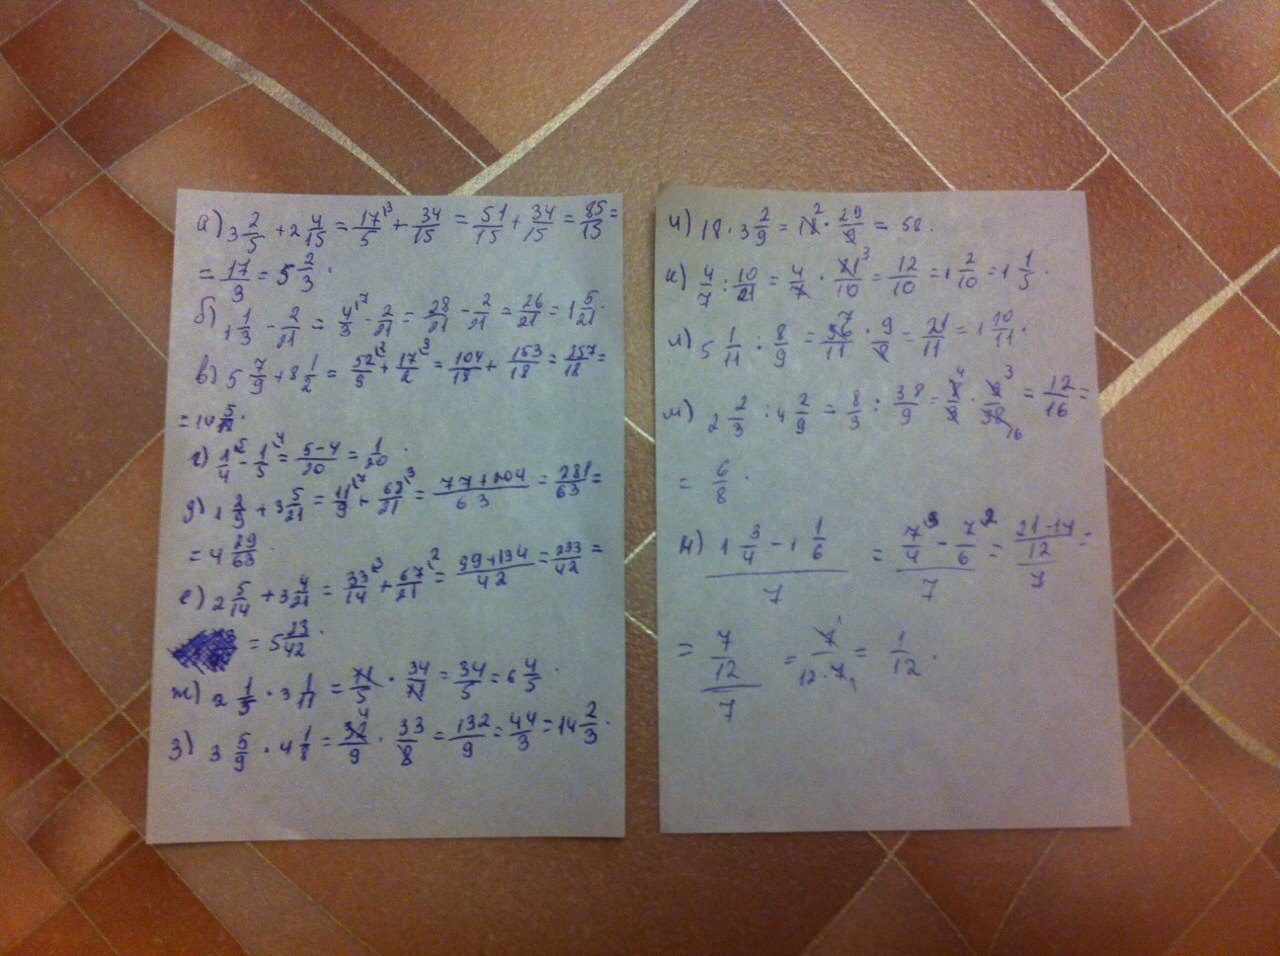 а) 3 2/5 + 2 4/15 = 17/5 ^3 + 34/15 = 51/15 + 34/15 = 85/15 =
= 17/3 = 5 2/3.
б) 1 1/3 - 2/21 = 4/3 ^7 - 2/21 = 28/21 - 2/21 = 26/21 = 1 5/21.
в) 5 7/9 + 8 1/2 = 52/9 ^2 + 17/2 ^9 = 104/18 + 153/18 = 257/18 =
= 14 5/18.
г) 1/4 ^5 - 1/5 ^4 = 5-4/20 = 1/20.
д) 1 2/9 + 3 5/21 = 11/9 ^7 + 68/21 ^3 = 77+204/63 = 281/63 =
= 4 29/63.
е) 2 5/14 + 3 4/21 = 33/14 ^3 + 67/21 ^2 = 99+134/42 = 233/42 =
= 5 23/42.
ж) 2 1/5 · 3 1/11 = 11/5 · 34/11 = 34/5 = 6 4/5.
з) 3 5/9 · 4 1/8 = 32/9 ^4 · 33/8 = 132/9 = 44/3 = 14 2/3.
и) 18 · 3 2/9 = 18 ^2 · 29/9 = 58.
к) 4/7 : 10/21 = 4/7 · 21/10 ^3 = 12/10 = 1 2/10 = 1 1/5.
л) 5 1/11 : 8/9 = 56/11 ^7 · 9/8 = 21/11 = 1 10/11.
м) 2 2/3 : 4 2/9 = 8/3 : 38/9 = 8/3 ^4 · 9/38 ^3 16 = 12/16 =
= 6/8.
н) 1 3/4 - 1 1/6 / 7 = 7/4 ^3 - 7/6 ^2 / 7 = 21-14/12 / 7 =
= 7/12 / 7 = 7 ^1 / 12·7 1 = 1/12.